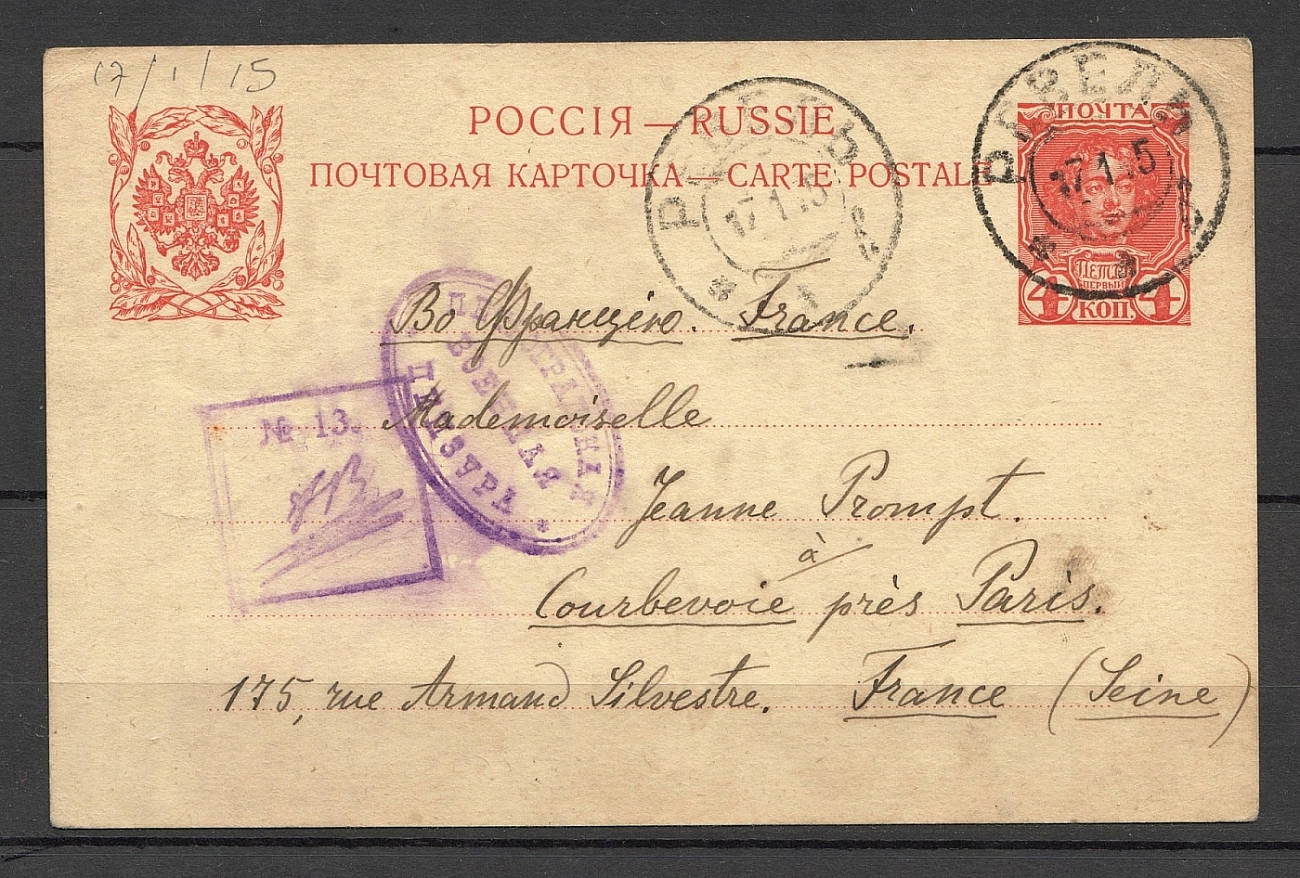 17/1/15
РОССІЯ — RUSSIE
ПОЧТОВАЯ КАРТОЧКА — CARTE POSTALE
ПОЧТА
17.1.15
17.1.15
ПЕТРЪ
ПЕРВЫЙ
4 КОП. 4
Во Францію. France.
ПЕТРОГРАДСКАЯ
ВОЕННАЯ
ЦЕНЗУРА
№ 13.
Mademoiselle
Jeanne Prompt.
à
Courbevoie près Paris.
175, rue Armand Silvestre. France (Seine)